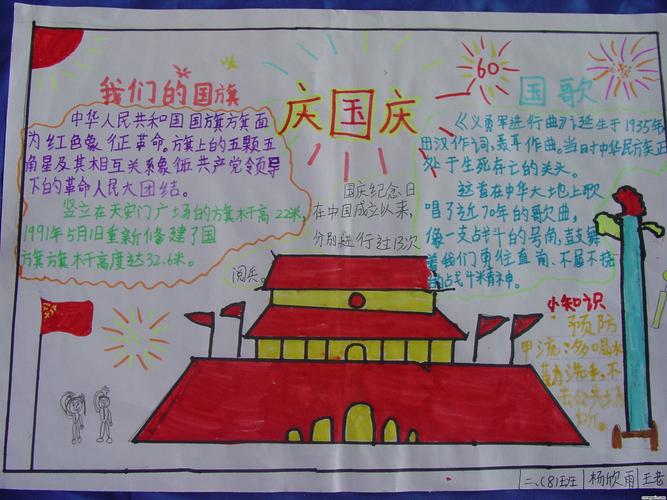 我们的国旗
中华人民共和国国旗旗面
为红色象征革命。旗上的五颗五
角星及其相互关系象征共产党领导
下的革命人民大团结。
竖立在天安门广场的旗杆高22米,
1991年5月1日重新修建了国
旗旗杆高度达32.6米。
庆国庆
60
国庆纪念日
在中国成立以来,
分别进行过13次
阅兵。
国歌
《义勇军进行曲》诞生于1935年
田汉作词,聂耳作曲。当时中华民族正
处于生死存亡的关头。
这首在中华大地上歌
唱了近70年的歌曲,
像一支战斗的号角,鼓舞
着我们勇往直前、不屈不挠
的战斗精神。
小知识
预防
甲流:多喝水
勤洗手,不
去公共场
所。
二、(8)班
杨欣雨